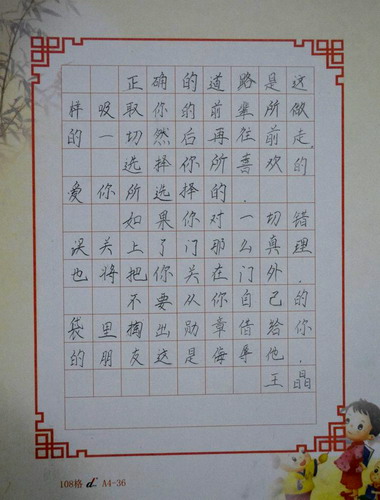 正确的道路是这
样吸取你的前辈所做
的一切然后再往前走。
选择你所喜欢的
爱你所选择的.
如果你对一切错
误关上了门那么真理
也将把你关在门外.
不要从你自己的
袋里掏出勋章借给你.
的朋友这是侮辱他.
王晶
108格 A4-36